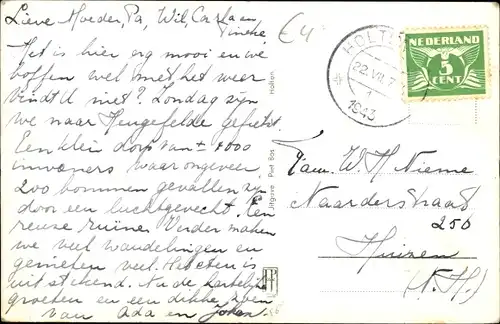 Lieve Moeder, Pa, Wil, Carla en
Tineke,
Het is hier erg mooi en we
boffen wel met het weer
vindt U niet? Zondag zijn
we naar Hengefelde gefietst.
Een klein dorp van ± 4000
inwoners waar ongeveer
200 bommen gevallen zijn
door een luchtgevecht. Een
reuse ruïne. Verder maken
we veel wandelingen en
genieten veel. Het eten is
uitstekend. Nu de hartelijke
groeten en een dikke zoen
van Ada en Johan.
€4
Uitgave Piet Bos Holten
HOLTEN
22.VII.7
1
1943
NEDERLAND
3
CENT
Fam. W. H. Nieme
Naarderstraat
250
Huizen
(N.H.)